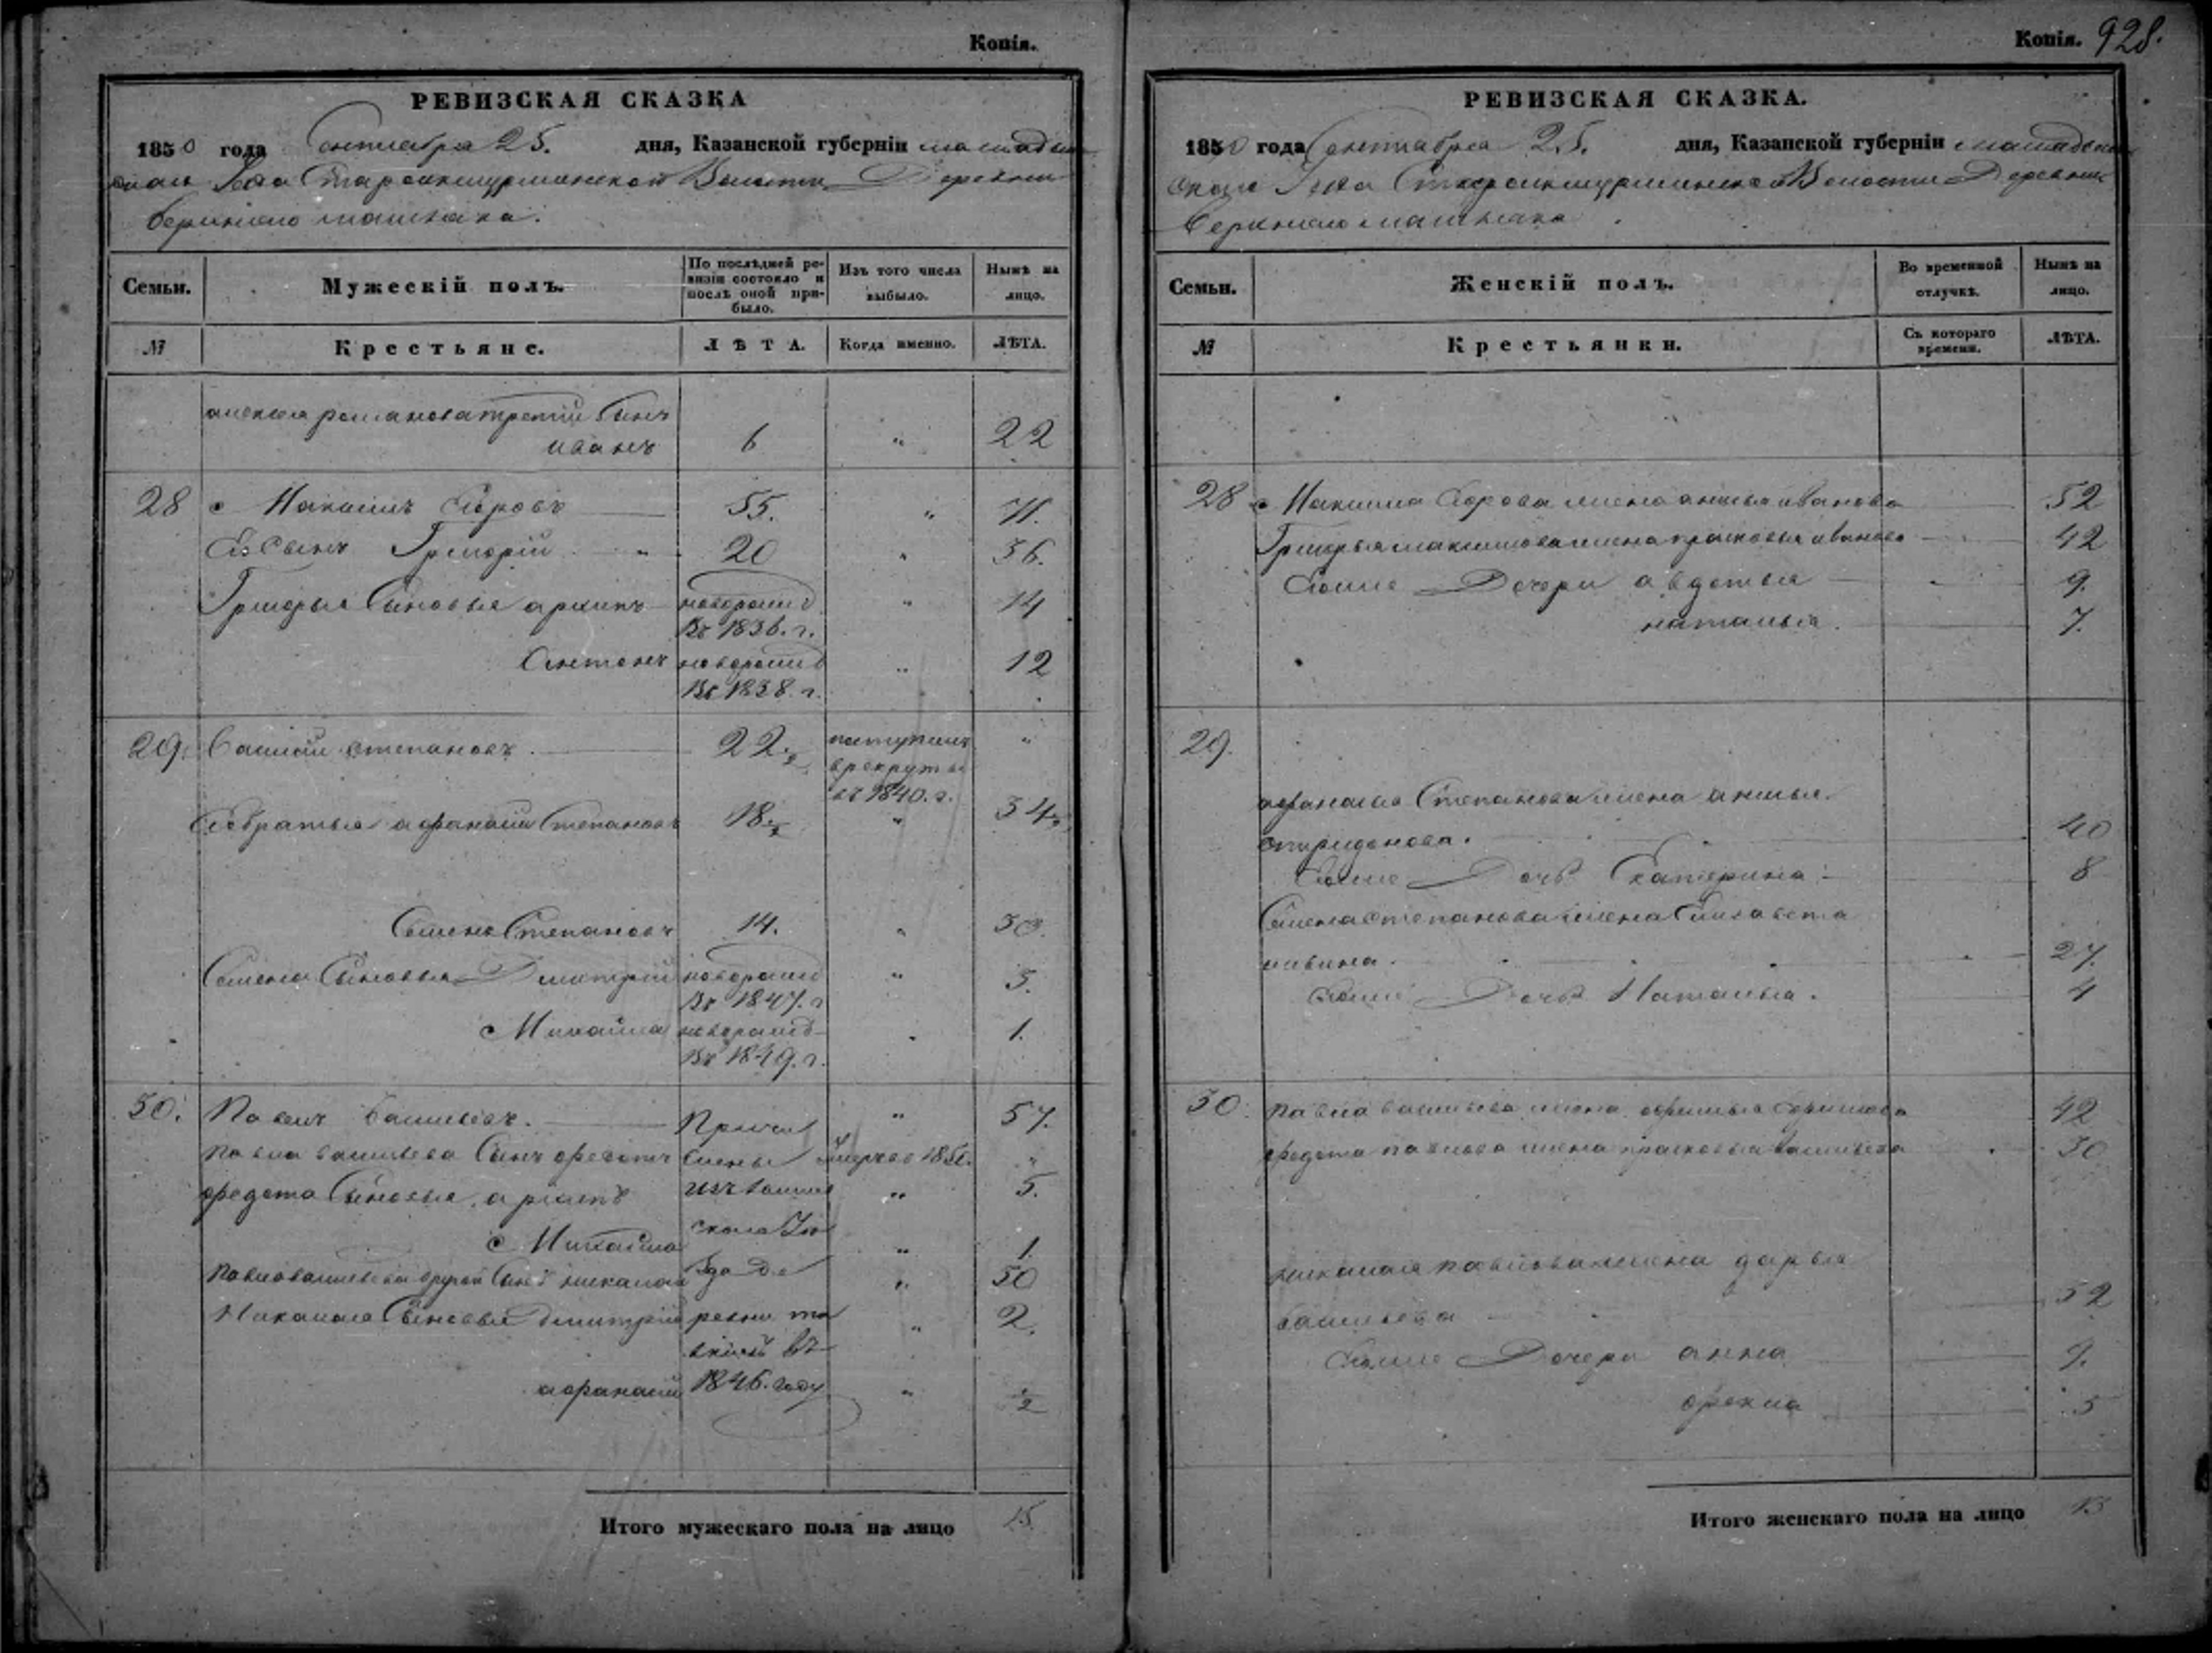 Копія.
РЕВИЗСКАЯ СКАЗКА
1850 года Сентября 25. дня, Казанской губерніи мамадыш
скаго Уезда Староикшурминской Волости Деревни
верхняго
Семьи. Мужескій полъ. По послѣдней ревизіи состояло и послѣ оной прибыло. Изъ того числа выбыло. Нынѣ на лицо.
№ Крестьяне. ЛѢТА. Когда именно. ЛѢТА.
алексея романова третій сынъ
иванъ 6 " 22
28 Максимъ 55. " 71.
Ево Сынъ Григорій " 20 " 36.
Григорья Сыновья архипъ новорожд " 14
въ 1836. г.
Антонъ новорожд " 12
въ 1838. г.
29. василий степановъ. 22. поступилъ "
в рекруты
въ 1840. г.
Ево братья афанасий Степановъ 18 1/2 " 34 1/2
Семенъ Степановъ 14. " 30.
Семена Сыновья Дмитрий новорожд " 3.
въ 1847. г
Михайла новорожд " 1.
въ 1849. г.
30. Павелъ васильевъ. Причи " 57.
павла васильева Сынъ федотъ слены умеръ в 1850. "
федота Сыновья архипъ изъ " 5.
скаго Уе
Михайла " 1
павла васильева другой Сынъ николай зда Де " 30
Николая Сыновья дмитрий ревни " 2.
въ
афанасий 1846. году " 1/2
Итого мужескаго пола на лицо 15.
Копія. 928.
РЕВИЗСКАЯ СКАЗКА.
1850 года Сентября 25. дня, Казанской губерніи мамадыш
скаго Уезда Староикшурминской Волости Деревни
Верхняго
Семьи. Женскій полъ. Во временной отлучкѣ. Нынѣ на лицо.
№ Крестьянки. Съ котораго времени. ЛѢТА.
28 Максима жена иванова 52
Григорья максимова жена прасковья иванова 42
Ево же Дочери авдотья 9.
наталья. 7.
29.
афанасья Степанова жена
спиридонова. 40
Ево же Дочь Екатерина 8
Семена степанова жена Елизавета
27.
Ево же Дочь Наталья. 4
30. павла васильева жена 42
федота павлова жена прасковья васильева 30
николая павлова жена дарья
васильева 32
Ево же Дочери анна 9.
фекла 5
Итого женскаго пола на лицо 13